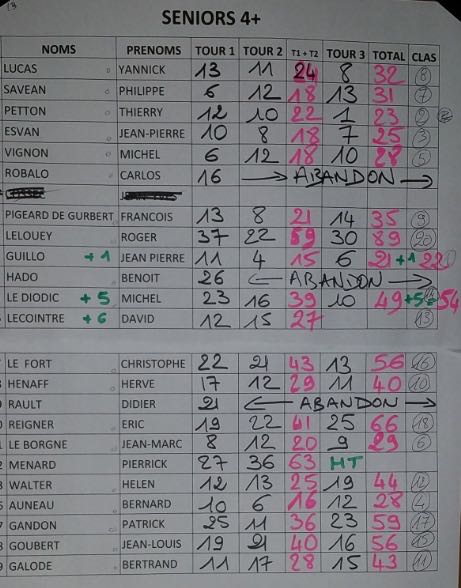 13
SENIORS 4+
NOMS PRENOMS TOUR 1 TOUR 2 T1 + T2 TOUR 3 TOTAL CLAS
LUCAS YANNICK 13 11 24 8 32 8
SAVEAN PHILIPPE 6 12 18 13 31 7
PETTON THIERRY 12 10 22 1 23 2
ESVAN JEAN-PIERRE 10 8 18 7 25 3
VIGNON MICHEL 6 12 18 10 28 5
ROBALO CARLOS 16 → ABANDON →
PIGEARD DE GURBERT FRANCOIS 13 8 21 14 35 9
LELOUEY ROGER 37 22 59 30 89 20
GUILLO +1 JEAN PIERRE 11 4 15 6 21 +1 22
HADO BENOIT 26 ← ABANDON →
LE DIODIC +5 MICHEL 23 16 39 10 49 +5= 54
LECOINTRE +6 DAVID 12 15 27 13
LE FORT CHRISTOPHE 22 21 43 13 56 16
HENAFF HERVE 17 12 29 11 40 10
RAULT DIDIER 21 ← ABANDON →
REIGNER ERIC 19 22 41 25 66 18
LE BORGNE JEAN-MARC 8 12 20 9 29 6
MENARD PIERRICK 27 36 63 HT
WALTER HELEN 12 13 25 19 44 12
AUNEAU BERNARD 10 6 16 12 28 4
GANDON PATRICK 25 11 36 23 59 17
GOUBERT JEAN-LOUIS 19 21 40 16 56 15
GALODE BERTRAND 11 17 28 15 43 11